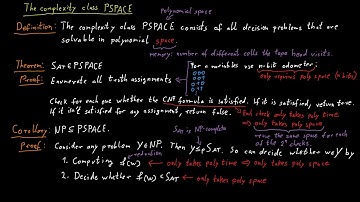 The complexity class PSPACE
polynomial space
Definition: The complexity class PSPACE consists of all decision problems that are
solvable in polynomial space.
memory: number of different cells the tape head visits.
Theorem: SAT ∈ PSPACE
Proof: Enumerate all truth assignments
For n variables use n-bit odometer:
000
001
only requires poly space (n bits)
Check for each one whether the CNF formula is satisfied. If it is satisfied, return true.
If it isn't satisfied for any assignment, return false.
Each check only takes poly time
⇒ only takes poly space
Corollary: NP ⊆ PSPACE.
SAT is NP-complete
reuse the same space for each
of the 2ⁿ checks.
Proof: Consider any problem Y ∈ NP. Then Y ≤p SAT. So can decide whether w ∈ Y by
reduction
1. Computing f(w) ← only takes poly time ⇒ only takes poly space
2. Decide whether f(w) ∈ SAT ← only takes poly space